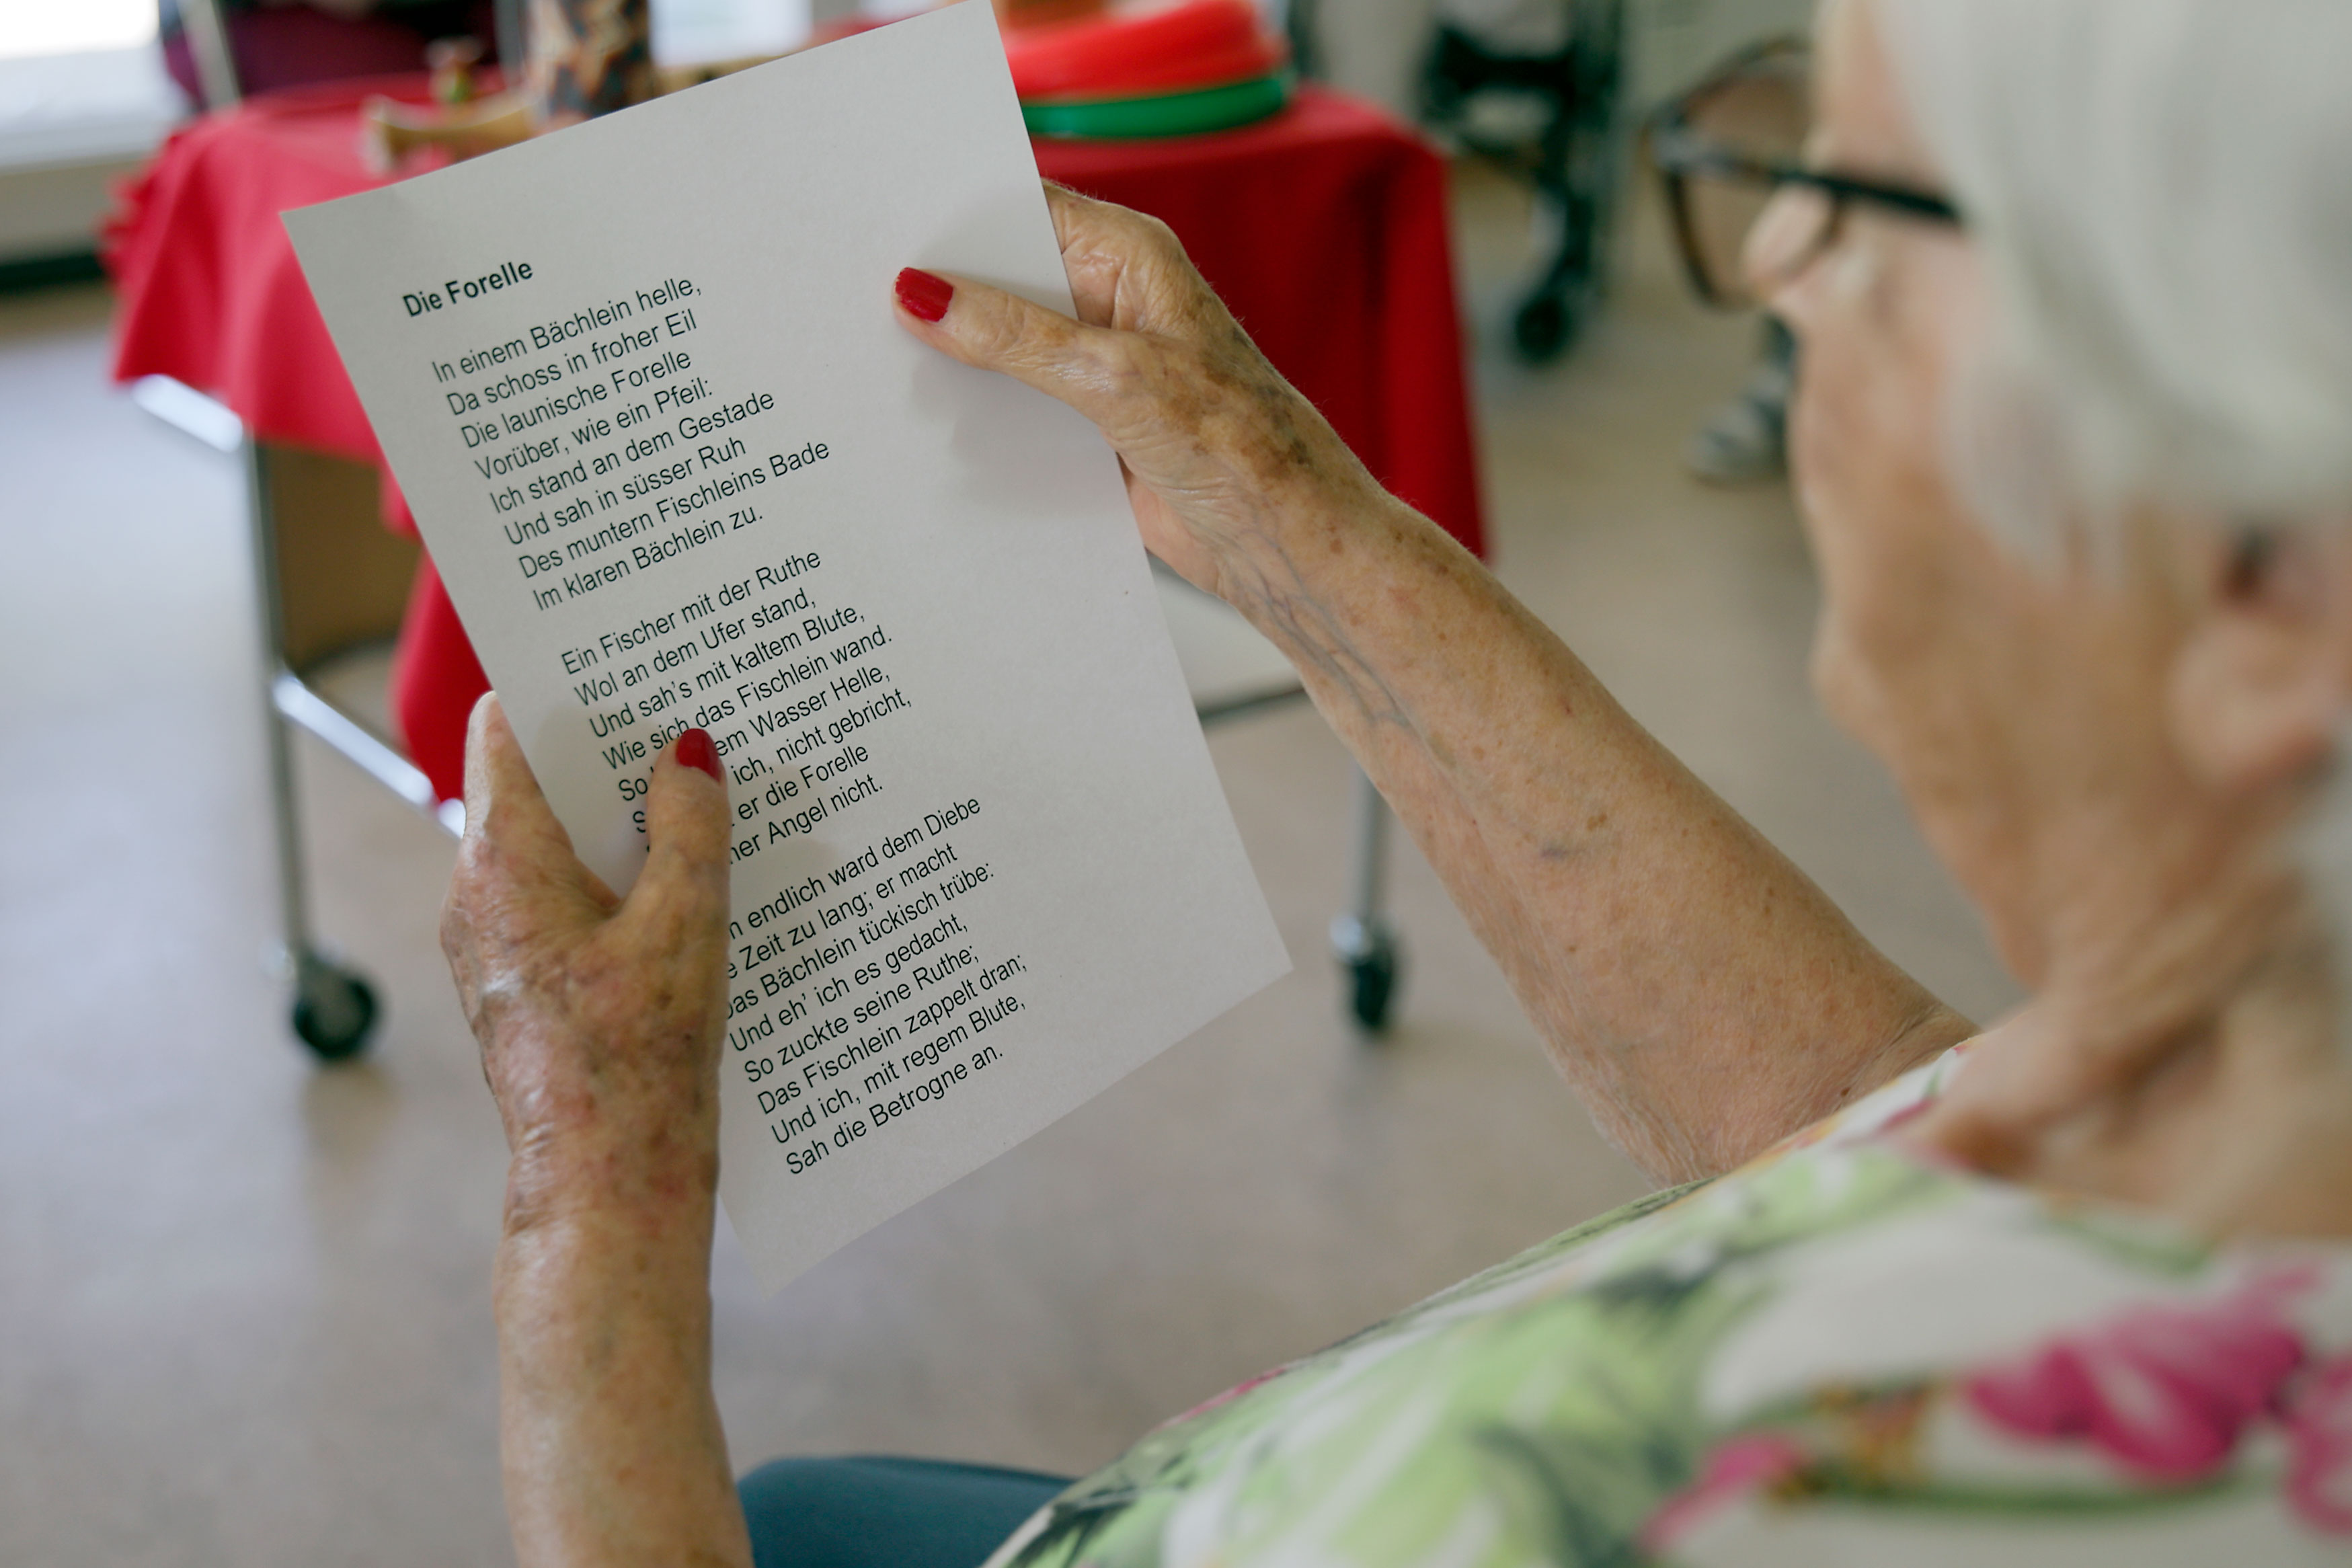 Die Forelle
In einem Bächlein helle,
Da schoss in froher Eil
Die launische Forelle
Vorüber, wie ein Pfeil:
Ich stand an dem Gestade
Und sah in süsser Ruh
Des muntern Fischleins Bade
Im klaren Bächlein zu.
Ein Fischer mit der Ruthe
Wol an dem Ufer stand,
Und sah's mit kaltem Blute,
Wie sich das Fischlein wand.
So Wasser Helle,
ich, nicht gebricht,
er die Forelle
Angel nicht.
endlich ward dem Diebe
Zeit zu lang; er macht
Bächlein tückisch trübe:
Und eh' ich es gedacht,
So zuckte seine Ruthe;
Das Fischlein zappelt dran;
Und ich, mit regem Blute,
Sah die Betrogne an.